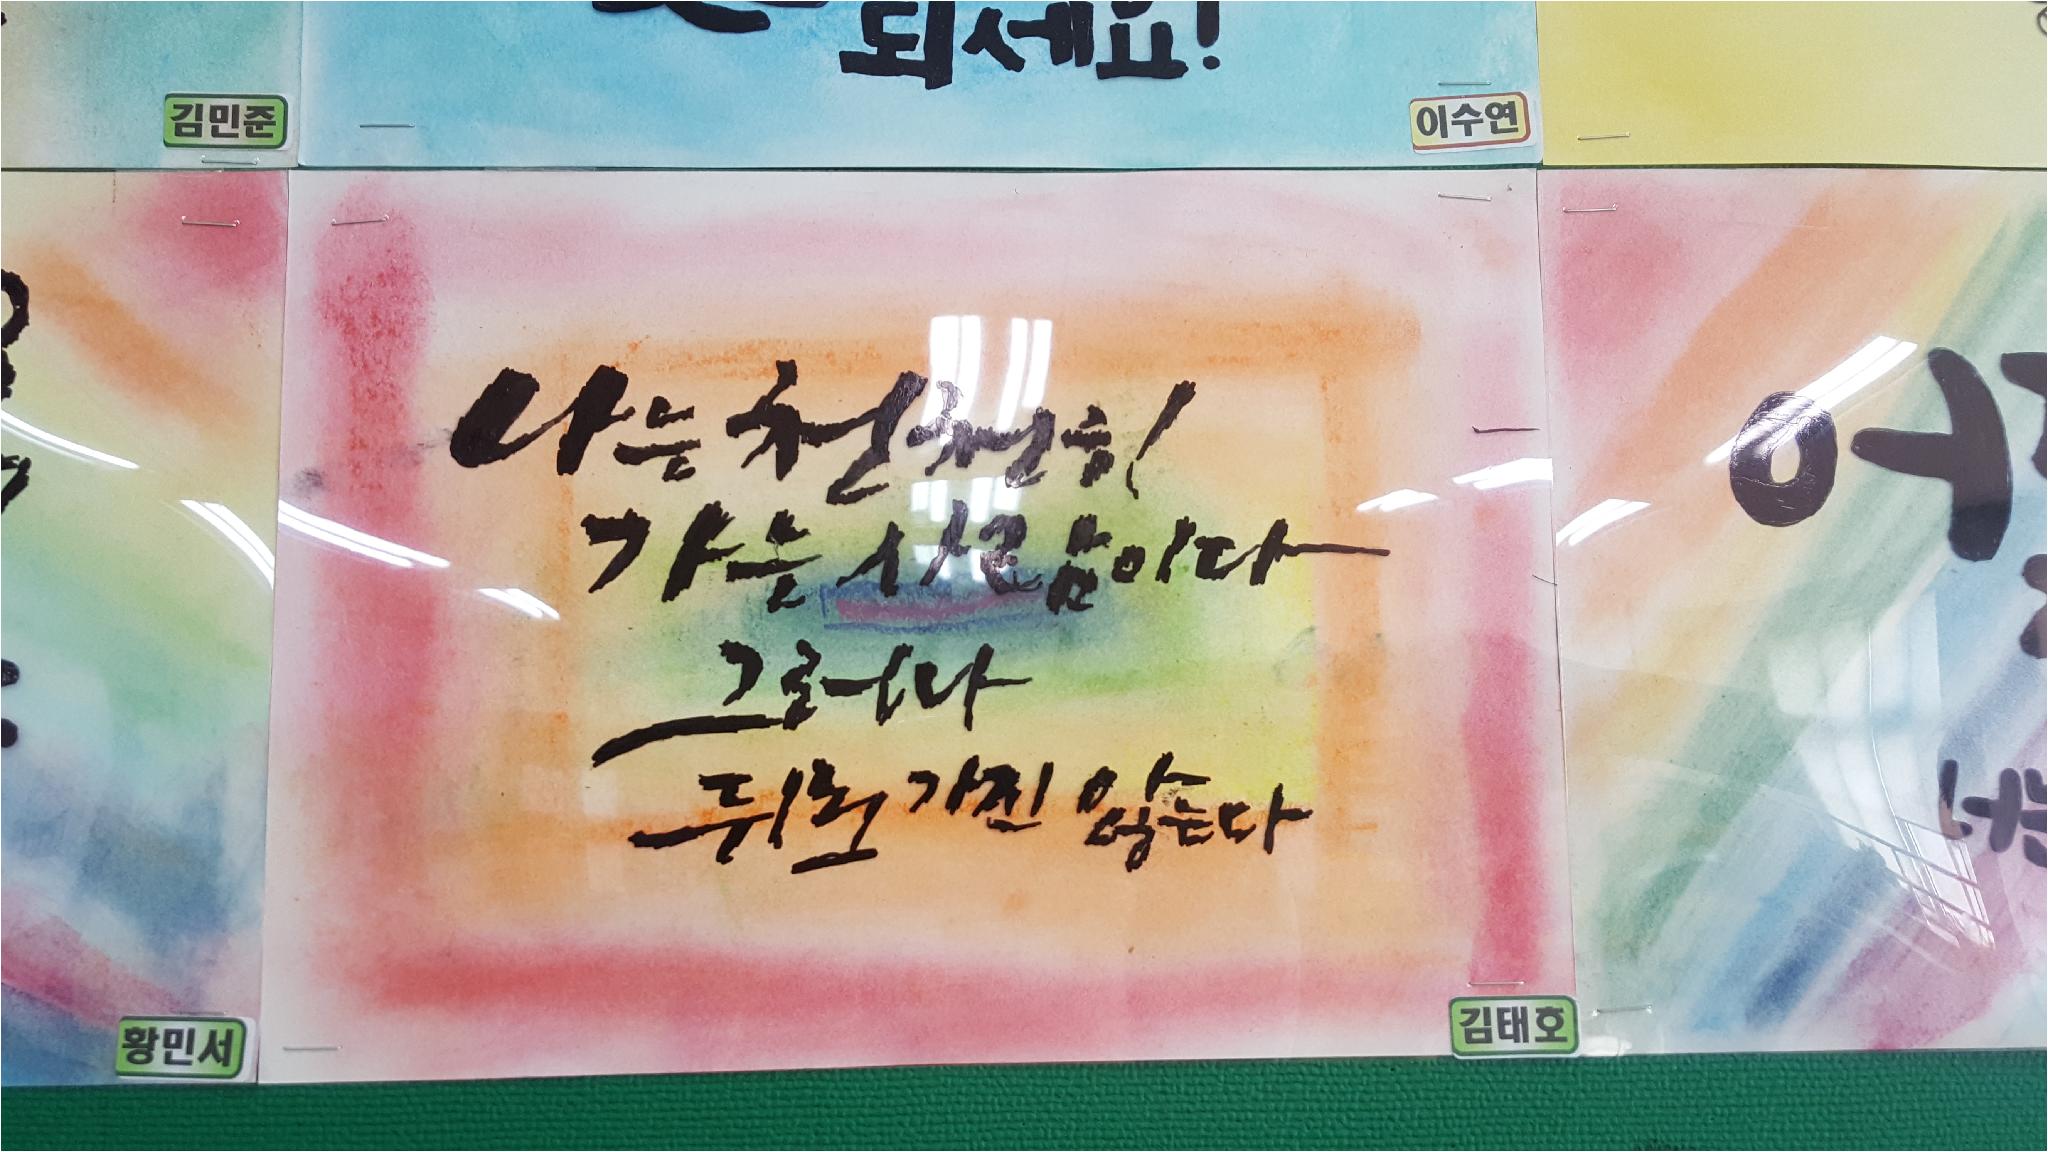 되세요!
김민준
이수연
나는 천천히
가는 사람이다
그러나
뒤로 가진 않는다
어
황민서
김태호